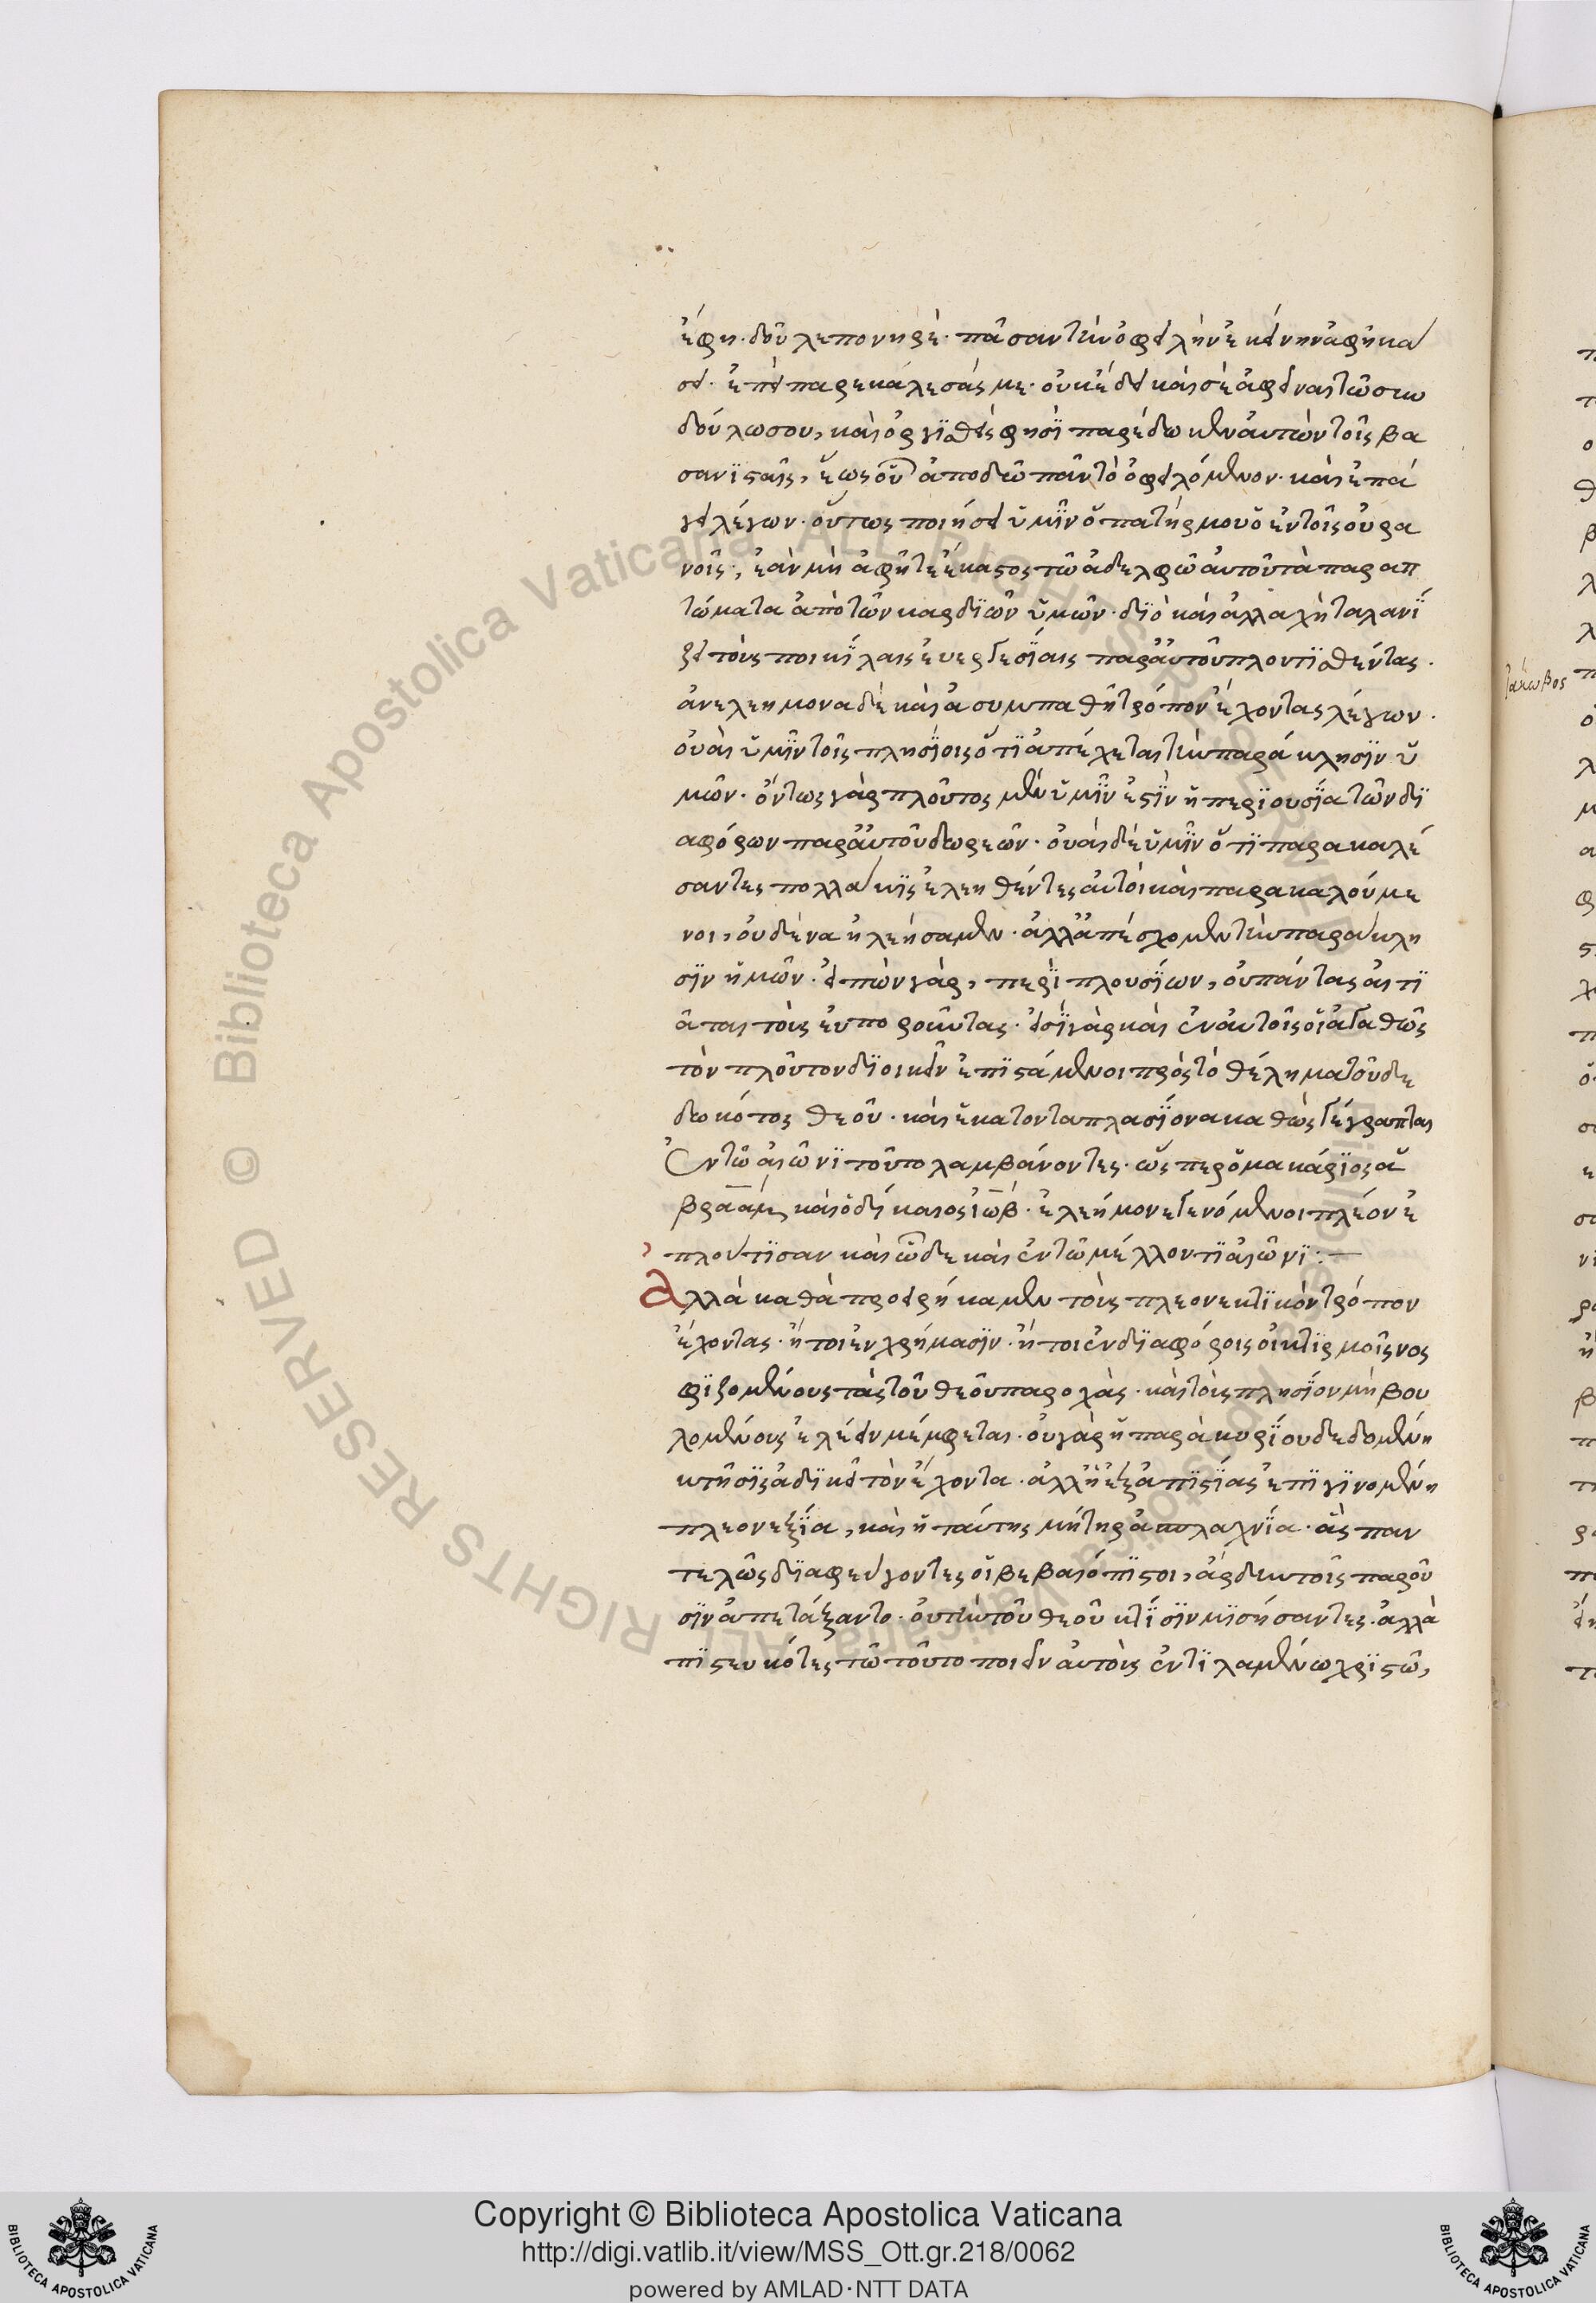 ἔφη· δοῦλε πονηρὲ· πᾶσαν τὴν ὀφειλὴν ἐκείνην ἀφῆκα
σει· ἐπεὶ παρεκάλεσάς με· οὐκ ἔδει καὶ σὲ ἀφεῖναι τῶ συν
δούλω σου, καὶ ὀργϊσθεὶς φησῒ παρέδωκεν αὐτὸν τοῖς βα
σανϊσταῖς, ἕως οὗ ἀποδῶ πᾶν τὸ ὀφειλόμενον· καὶ ἐπά
γει λέγων· οὕτως ποιήσει ὑμῖν ὁ πατήρ μου ὁ ἐν τοῖς οὐρα
νοῖς, ἐὰν μὴ ἀφῆτε ἕκαστος τῶ ἀδελφῶ αὐτοῦ τὰ παραπ
τώματα ἀπὸ τῶν καρδϊῶν ὑμῶν· δϊὸ καὶ ἀλλαχῆ ταλανΐ
ζει τοὺς ποικΐλαις ἐυεργεσΐαις παρ' ἀυτοῦ πλουτϊσθέντας·
ἀνελεήμονα δὲ καὶ ἀσυμπαθῆ τρόπον ἔχοντας λέγων·
οὐαὶ ὑμῖν τοῖς πλησΐοις ὅτϊ ἀπέχεται τὴν παράκλησϊν ὑ
μῶν· ὄντως γὰρ πλοῦτος μὲν ὑμῖν ἐστὶν ἡ περϊουσΐα τῶν δϊ
αφόρων παρ' ἀυτοῦ δωρεῶν· οὐαὶ δὲ ὑμῖν ὅτϊ παρακαλέ
σαντες πολλάκϊς ἐλεηθέντες ἀυτοὶ καὶ παρακαλούμε
νοι, οὐδένα ἠλεήσαμεν· ἀλλ' ἀπέσχομεν τὴν παράκλη
σϊν ἡμῶν· εἰπὼν γὰρ, περῒ πλουσΐων, οὐ πάντας αἰτϊ
ᾶται τοὺς ἐυποροῦντας· εἰσῒ γὰρ καὶ ἐν ἀυτοῖς οἳ ἀγαθῶς
τὸν πλοῦτον δϊοικεῖν ἐπϊστάμενοι πρὸς τὸ θέλημα τοῦ δε
δωκότος θεοῦ· καὶ ἑκατονταπλασΐονα καθὼς γέγραπται
ἐν τῶ αἰῶνϊ τοῦτο λαμβάνοντες· ὥσπερ ὁ μακάρϊος ἁ
βραὰμ, καὶ ὁ δΐκαιος ἰὼβ· ἐλεήμονε γενόμενοι πλέον ἐ
πλούτϊσαν καὶ ὧδε καὶ ἐν τῶ μέλλοντϊ αἰῶνϊ :—
Ἀλλὰ καθὰ προειρήκαμεν τοὺς πλεονεκτϊκὸν τρόπον
ἔχοντας· ἤτοι ἐν χρήμασϊν· ἤτοι ἐν δϊαφόροις οἰκτϊρμοῖς νος
φϊζομένους τὰς τοῦ θεοῦ παροχὰς· καὶ τοὺς πλησΐον μὴ βου
λομένους ἐλέειν μέμφεται· οὐ γὰρ ἡ παρὰ κυρΐου δεδομένη
κτῆσϊς ἀδϊκεῖ τὸν ἔχοντα· ἀλλ' ἡ ἐξ ἀπϊστΐας ἐπϊγϊνομένη
πλεονεξΐα, καὶ ἡ ταύτης μήτηρ ἀσπλαχνΐα· ἃς παν
τελῶς δϊαφεύγοντες οἳ βεβαιόπϊστοι, ἄρδην τοῖς παροῦ
σϊν ἀπετάξαντο· οὐ τὴν τοῦ θεοῦ κτΐσϊν μϊσήσαντες· ἀλλὰ
πϊστευκότες τῶ τοῦτο ποιεῖν ἀυτοὺς ἐντϊλαμένω χρϊστῶ,
Ἰάκωβος
Copyright © Biblioteca Apostolica Vaticana
http://digi.vatlib.it/view/MSS_Ott.gr.218/0062
powered by AMLAD·NTT DATA